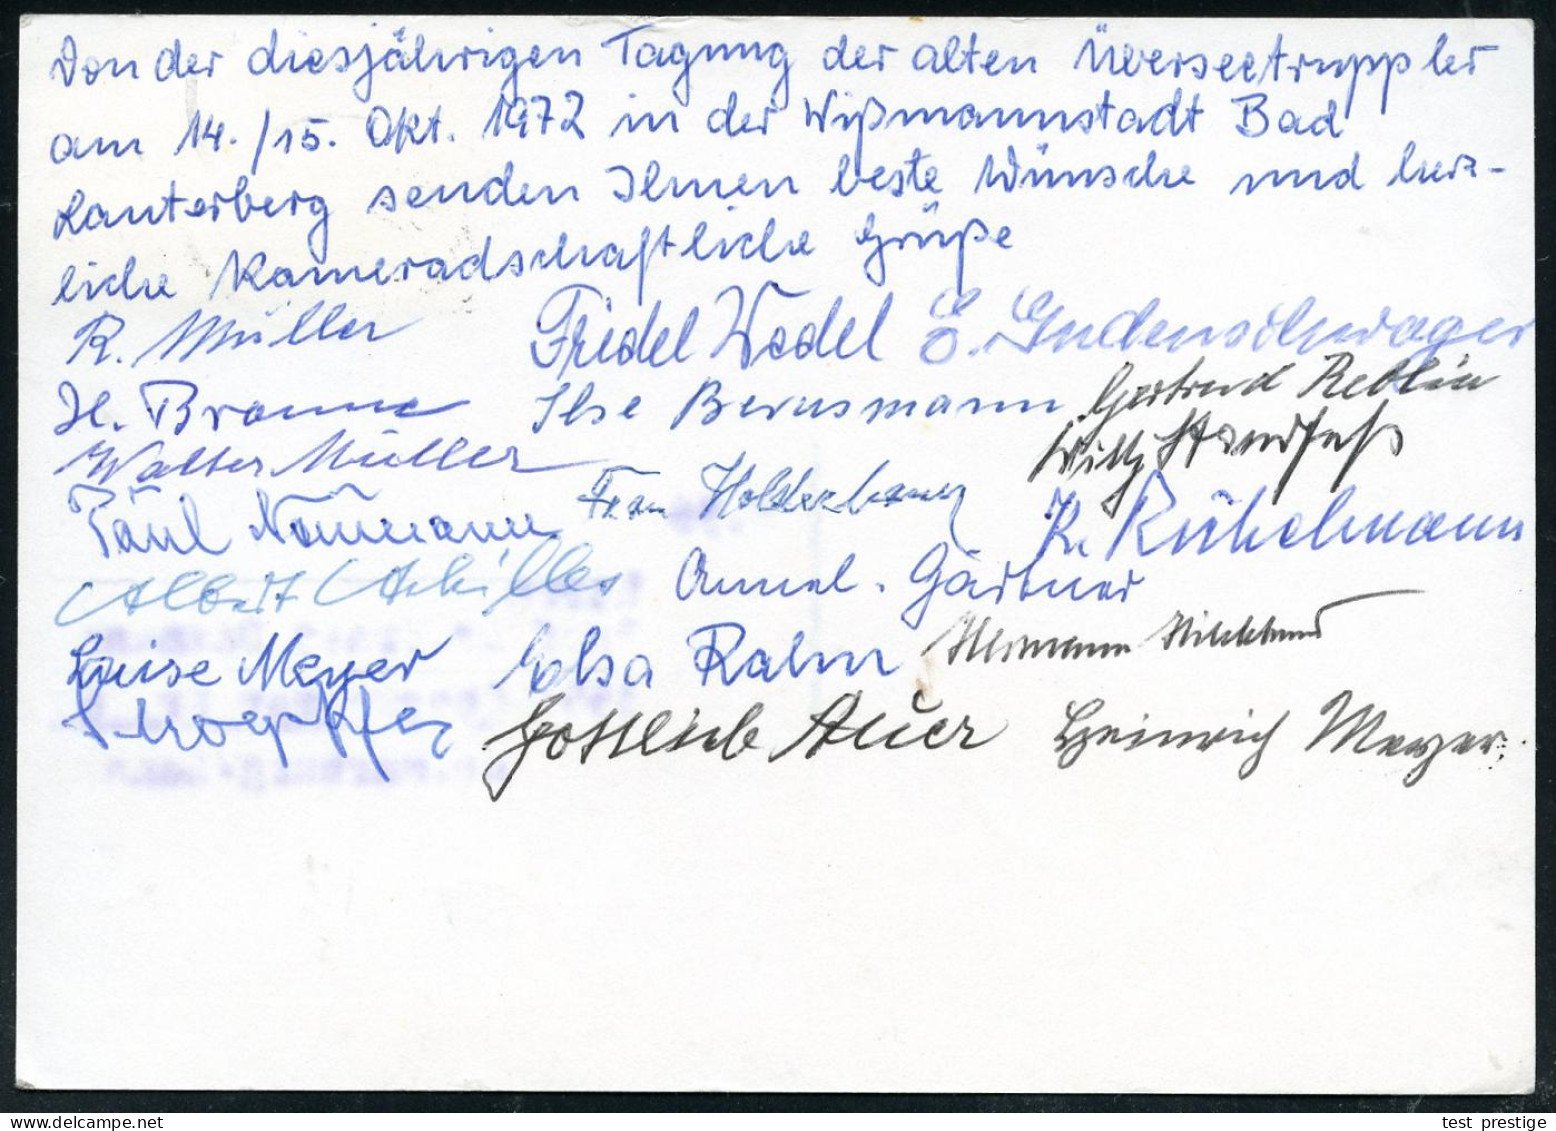 Von der diesjährigen Tagung der alten Überseetruppler
am 14./15. Okt. 1972 in der Wißmannstadt Bad
Lauterberg senden Ihnen beste Wünsche und herz-
liche Kameradschaftliche Grüße
R. Müller Fridel Wedel E. Gudenschwager
H. Braune Ilse Bernsmann Gertrud Reblin
Walter Müller Willy Handfaß
Paul Naumann Frau K. Rühelmann
Albert Achilles Annel. Gärtner
Luise Meyer Elsa Rahn Hermann
Gottlieb Auer Heinrich Meyer.
test prestige